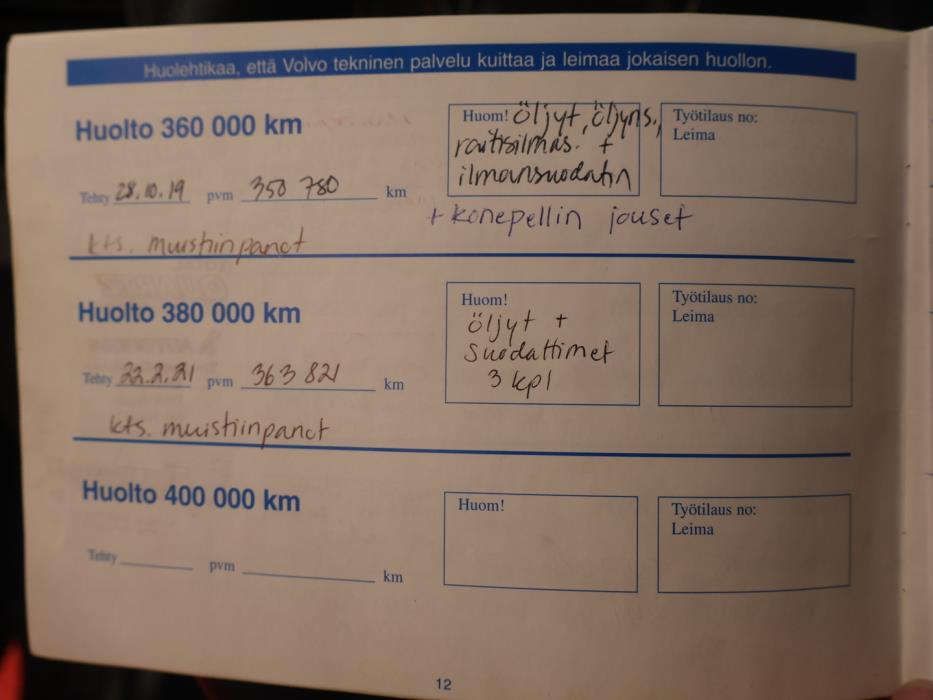 Huolehtikaa, että Volvo tekninen palvelu kuittaa ja leimaa jokaisen huollon.
Huolto 360 000 km
Huom! öljyt, öljyns.,
raitisilmas. +
ilmansuodatin
Työtilaus no:
Leima
Tehty 28.10.19 pvm 350 780 km
+ konepellin jouset
kts. muistiinpanot
Huolto 380 000 km
Huom!
öljyt +
suodattimet
3 kpl
Työtilaus no:
Leima
Tehty 22.2.21 pvm 363 821 km
kts. muistiinpanot
Huolto 400 000 km
Huom!
Työtilaus no:
Leima
Tehty pvm km
12